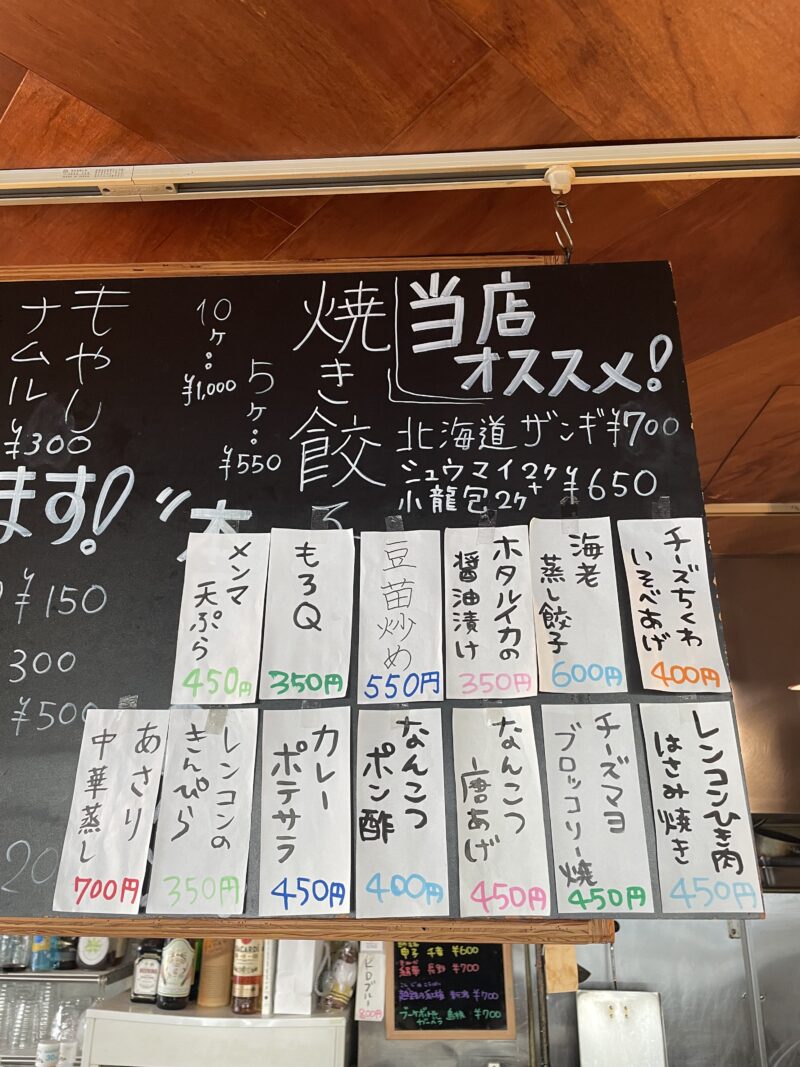 当店
オススメ!
北海道ザンギ ¥700
シュウマイ2ケ+
小龍包2ケ
¥650
焼き餃
5ケ:
¥550
10ケ:
¥1,000
もやし
ナムル
¥300
ます!
¥150
300
¥500
20
チーズちくわ
いそべあげ
400円
海老
蒸し餃子
600円
ホタルイカの
醤油漬け
350円
豆苗炒め
550円
もろQ
350円
メンマ
天ぷら
450円
レンコンひき肉
はさみ焼き
450円
チーズマヨ
ブロッコリー焼
450円
なんこつ
唐あげ
450円
なんこつ
ポン酢
400円
カレー
ポテサラ
450円
レンコンの
きんぴら
350円
あさり
中華蒸し
700円
BACARDI
¥600
¥700
¥700
¥700